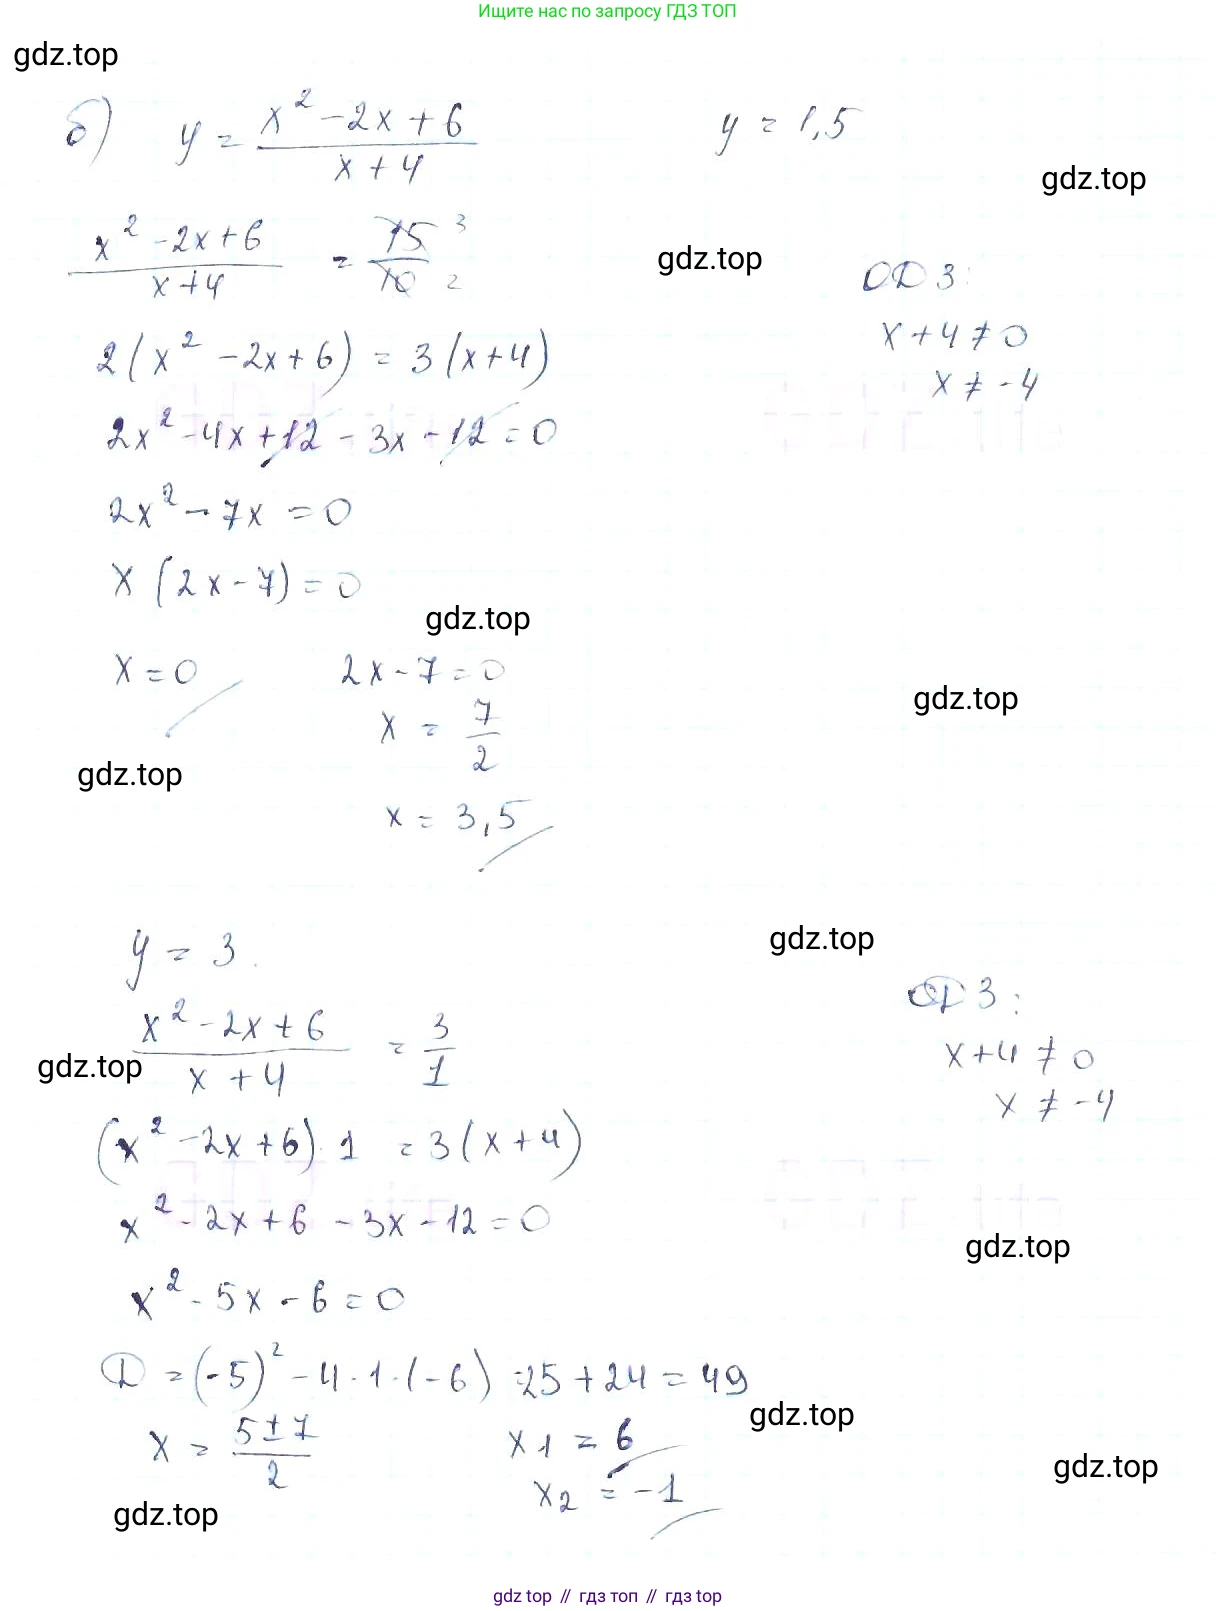 Ищите нас по запросу ГДЗ ТОП
gdz.top
б) y = (x² - 2x + 6)/(x + 4)    y = 1,5
gdz.top
(x² - 2x + 6)/(x + 4) = 15/10 3 2
gdz.top
ОДЗ:
2(x² - 2x + 6) = 3(x + 4)
x + 4 ≠ 0
x ≠ -4
2x² - 4x + 12 - 3x - 12 = 0
2x² - 7x = 0
x(2x - 7) = 0
gdz.top
x = 0    2x - 7 = 0
gdz.top
x = 7/2
gdz.top
x = 3,5
y = 3.
gdz.top
ОДЗ:
(x² - 2x + 6)/(x + 4) = 3/1
gdz.top
x + 4 ≠ 0
x ≠ -4
(x² - 2x + 6) · 1 = 3(x + 4)
x² - 2x + 6 - 3x - 12 = 0
gdz.top
x² - 5x - 6 = 0
D = (-5)² - 4 · 1 · (-6) = 25 + 24 = 49
gdz.top
x = (5 ± 7)/2    x1 = 6
gdz.top
x2 = -1
gdz.top
gdz top // гдз топ // gdz top